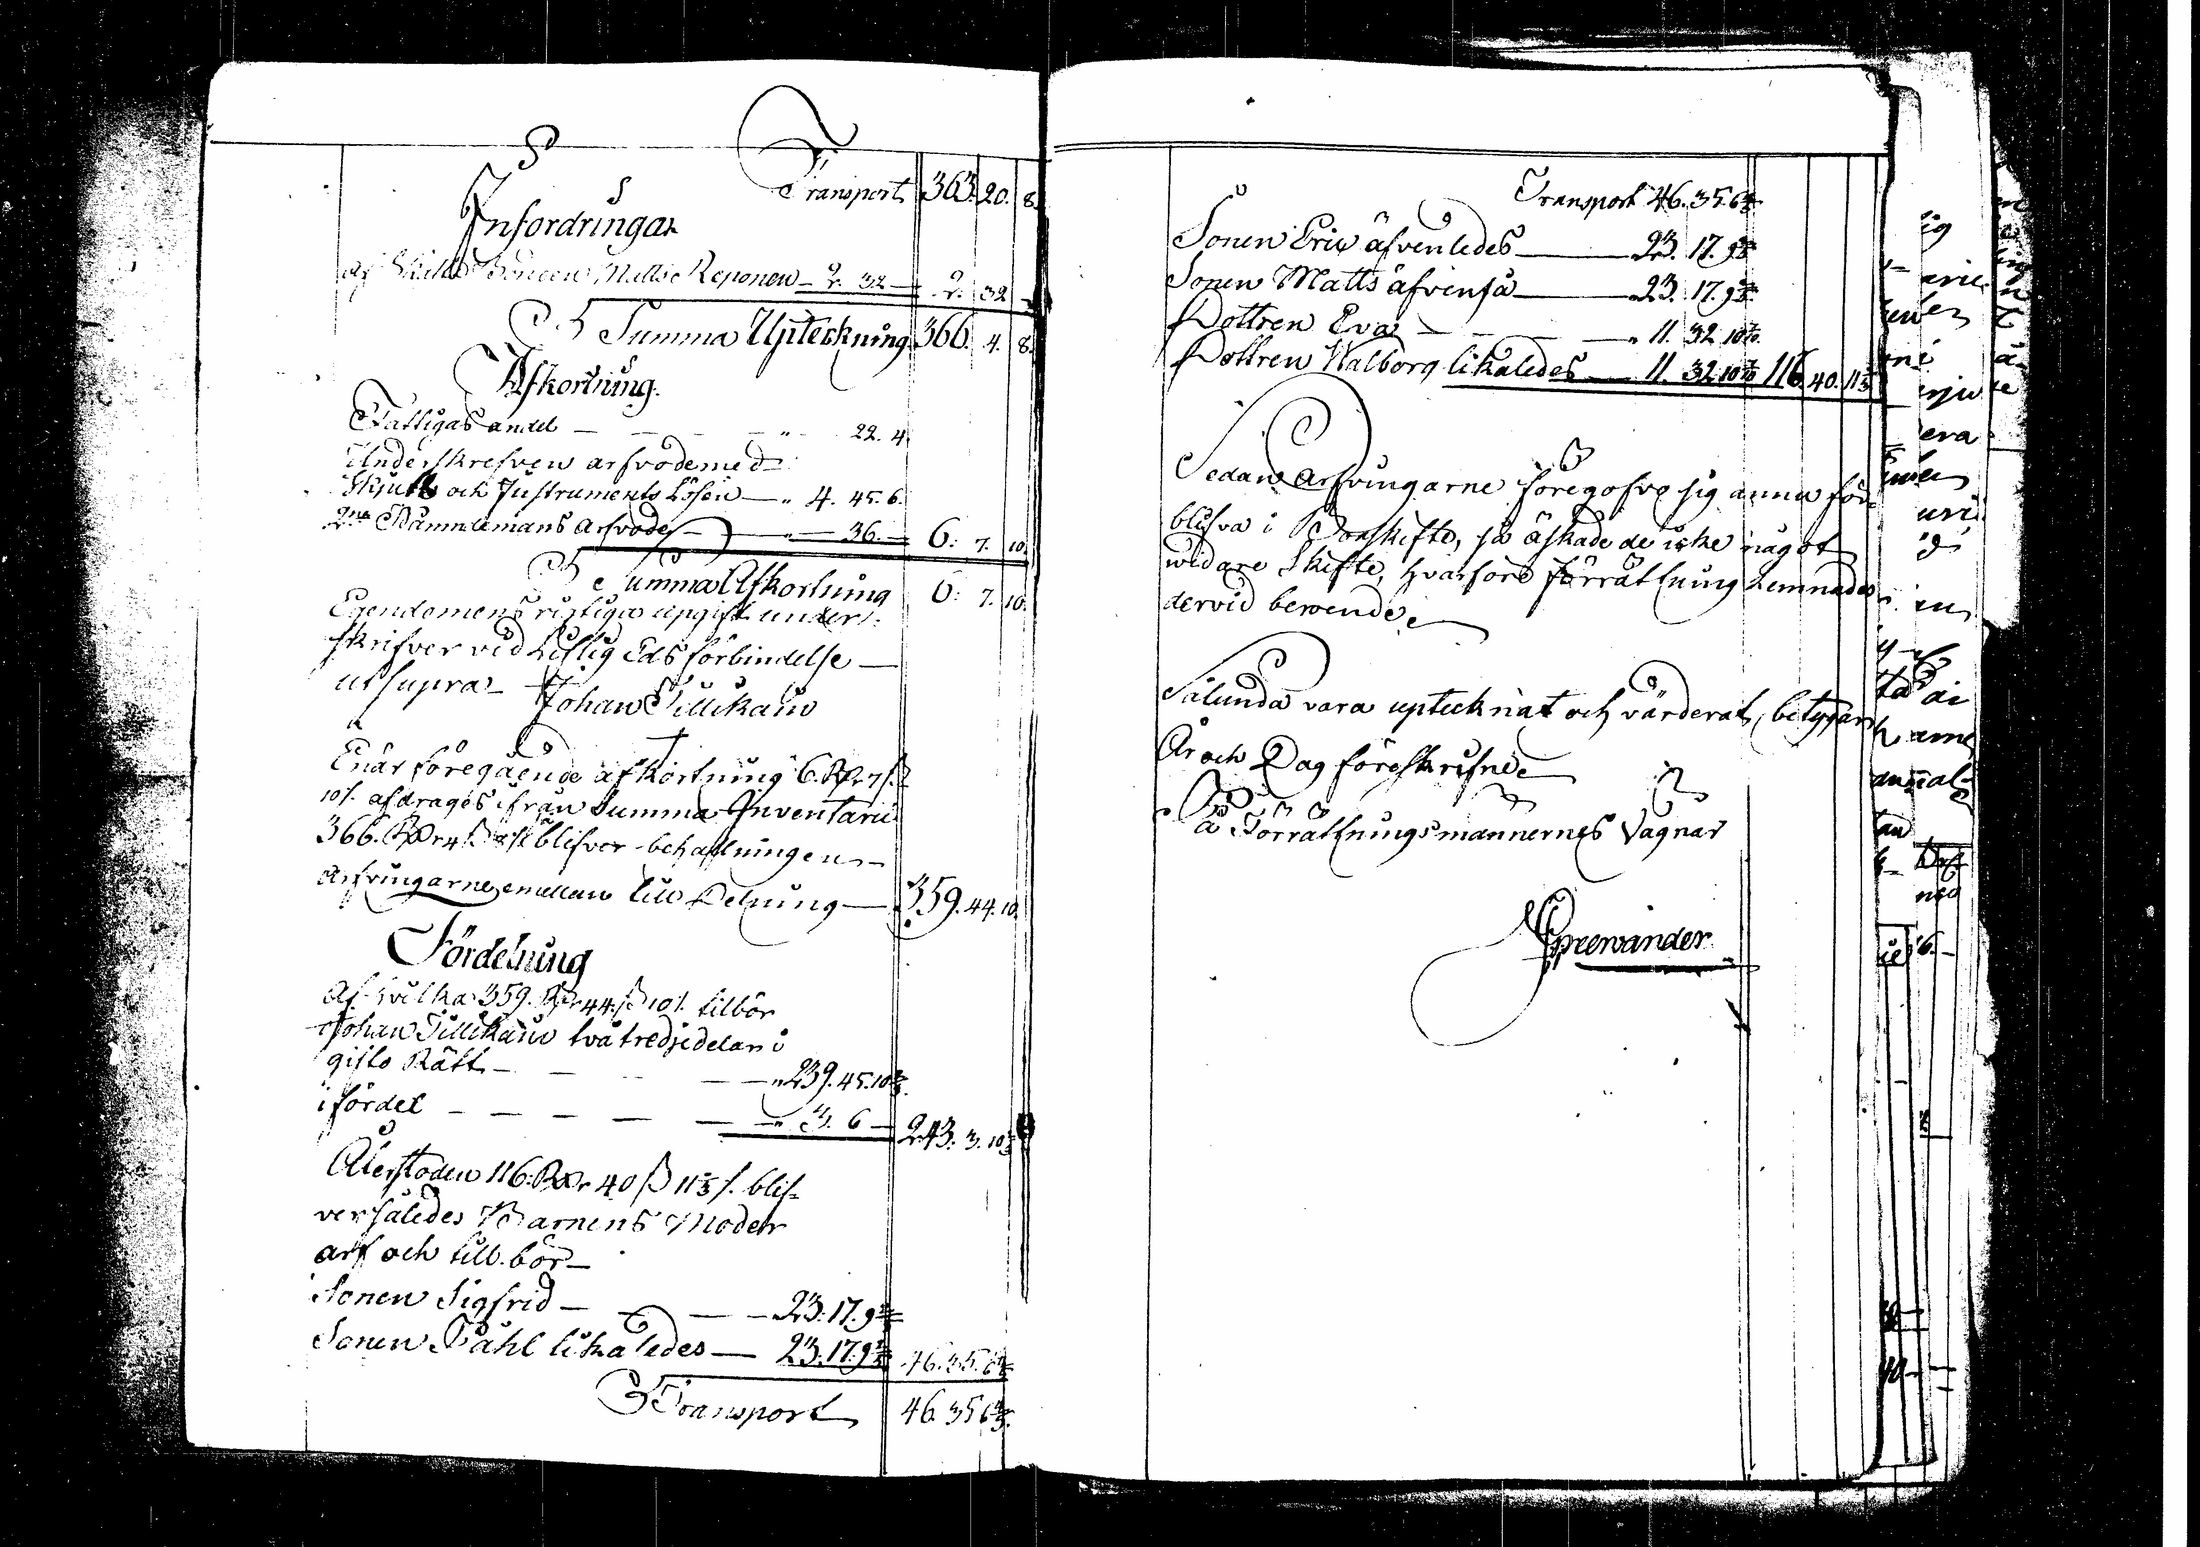 Transport 363. 20. 8.
Infordringar
af Matts Reponen 2. 32 2. 32
Summa Upteckning 366. 4. 8.
Afkortning.
Fattigas andel 22. 4.
Underskrefven arfvode med
Skjuts och Instruments Lösen 4. 45. 6.
2ne Nämndemans arfvode 36. 6. 7. 10.
Summa Afkortning 6. 7. 10.
Egendomens riktiga upgift under-
skrifver vid Liflig Eds förbindelse
ut supra Johan Tillikain
Enär föregående afkortning 6. Rdr 7 s.
10 /. afdrages ifrån Summa Inventarii
366. Rdr 4 blifver behållningen
arfvingarne emellan till Delning 359. 44. 10.
Fördelning
Af hvilka 359. Rdr 44. s 10 /. tilbör
Johan Tillikain två tredjedelar i
gifto Rätt 239. 45. 10 2/3.
i fördel 3. 6 243. 3. 10 2/3
Återstoden 116. Rdr 40 s 11 1/3 /. blif-
ver således Barnens Moder
arf och till bör
Sonen Sigfrid 23. 17. 9
Sonen Påhl likaledes 23. 17. 9 46. 35. 6
Transport 46. 35 6
Transport 46. 35. 6
Sonen Eric äfvenledes 23. 17. 9
Sonen Matts äfvenså 23. 17. 9
Dottren Eva 11. 32 10
Dottren Walborg likaledes 11. 32 10 116. 40. 11 1/3
Sedan Arfvingarne föregofvo sig ännu för-
blifva i Bouskifte, så äskade de icke något
widare Skifte, hvarföre förrättning lemnades
dervid beroende.
Sålunda vara uptecknat och värderat, betygar
År och Dag föreskrifne
På Förrättningsmannernes vägnar
Sprewander